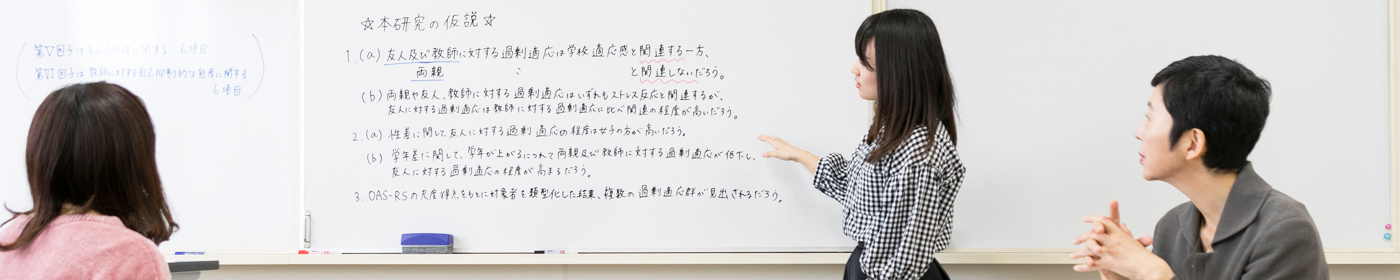 第Ⅴ因子は友人 に関する 6項目
第Ⅵ因子は教師に対する自己抑制的な態度に関する
6項目
☆本研究の仮説☆
1. (a) 友人及び教師に対する過剰適応は学校適応感と関連する一方、
両親 〃 と関連しないだろう。
(b) 両親や友人、教師に対する過剰適応はいずれもストレス反応と関連するが、
友人に対する過剰適応は教師に対する過剰適応に比べ関連の程度が高いだろう。
2. (a) 性差に関して、友人に対する過剰適応の程度は女子の方が高いだろう。
(b) 学年差に関して、学年が上がるにつれて両親及び教師に対する過剰適応が低下し、
友人に対する過剰適応の程度が高まるだろう。
3. OAS-RSの尺度得点をもとに対象者を類型化した結果、複数の過剰適応群が見出されるだろう。